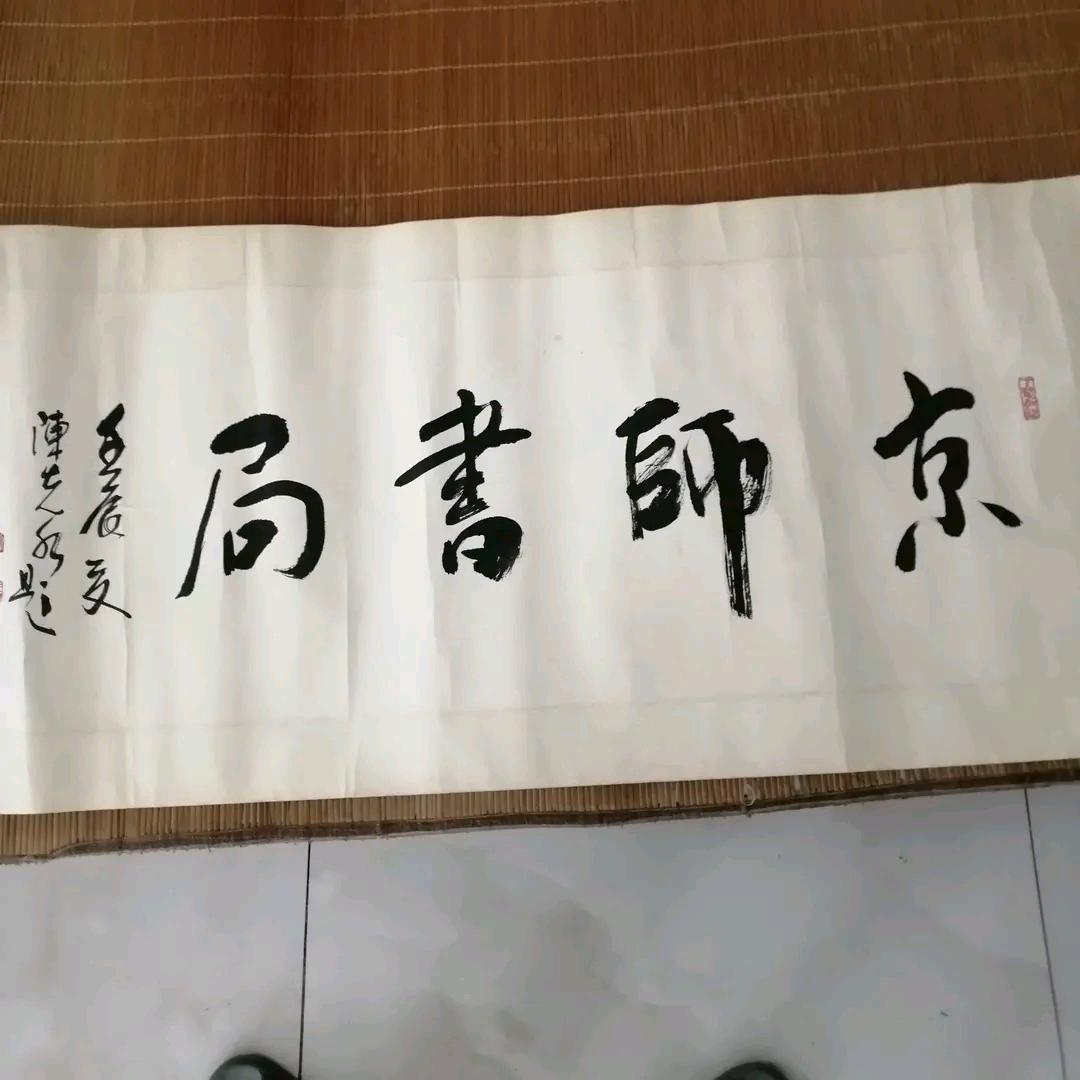 京師書局
壬辰夏
陳先永題